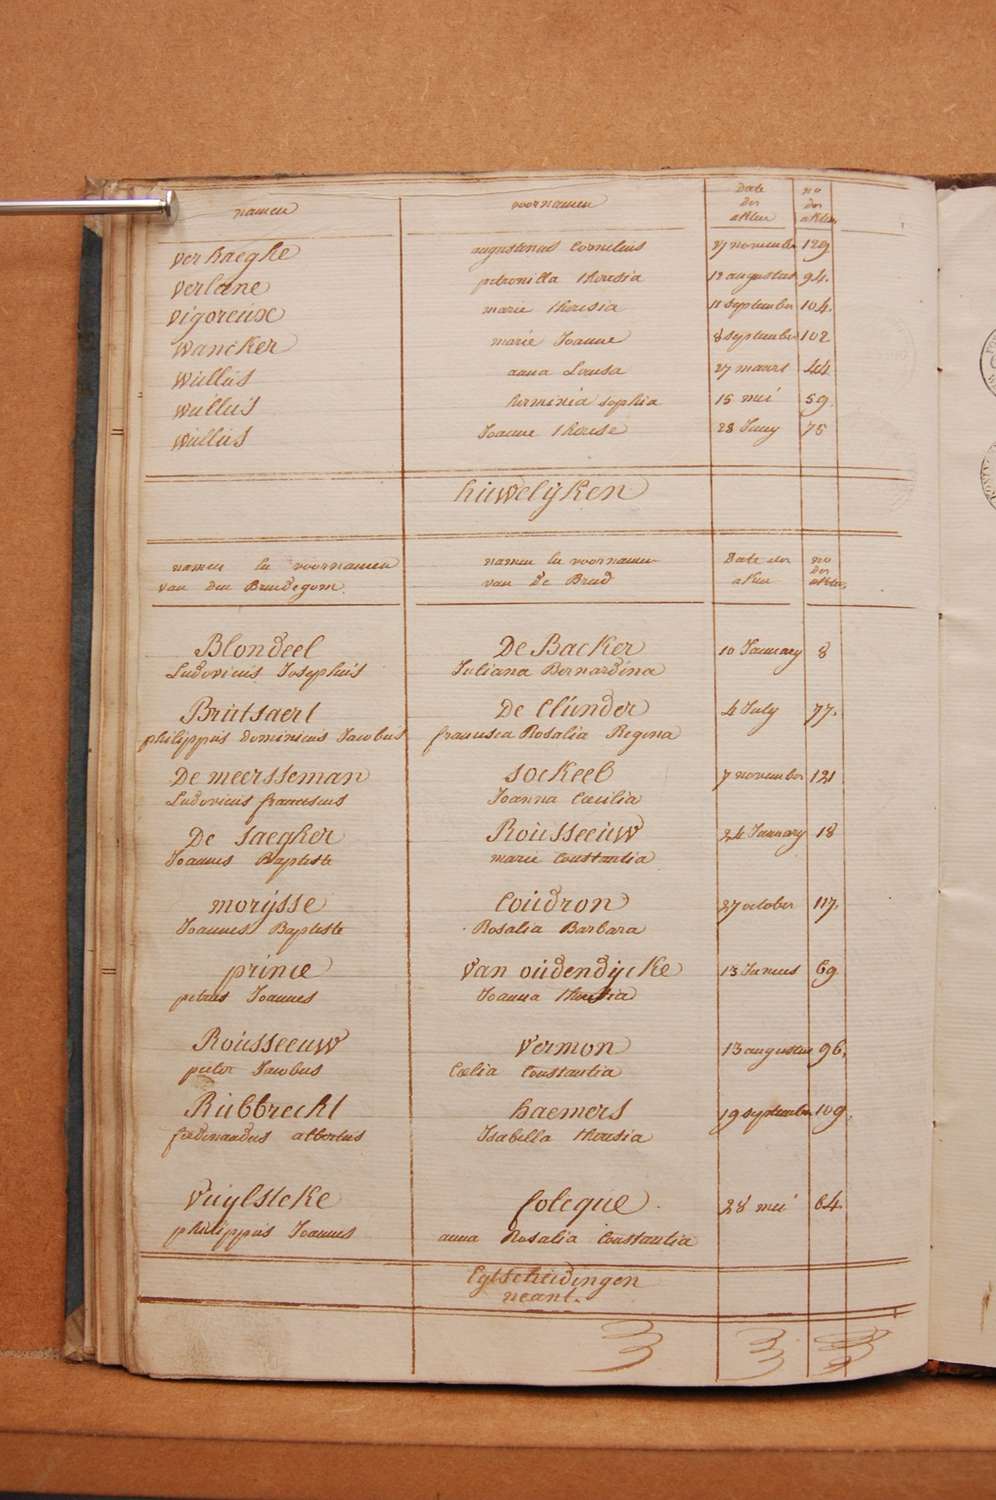 namen voornamen Date der akten no der akten
verhaeghe augustinus Cornelius 27 november 129.
verlene petronilla theresia 12 augustus 94.
vigoreux marie theresia 11 september 104.
wancker marie Joanne 8 september 102
wullus anna Louisa 27 maart 44
wullus herminia sophia 15 mei 59.
wullus Joanne therese 28 Juny 75
huwelijken
namen en voornamen van den Bruidegom. namen en voornamen van de Bruid Date der akten no der akten
Blondeel De Backer 10 January 8
Ludovicus Josephus Juliana Bernardina
Brutsaert De Clunder 4 July 77.
philippus dominicus Jacobus francisca Rosalia Regina
De meersseman sockeel 7 november 121
Ludovicus franciscus Joanna Cecilia
De saegher Rousseeuw 24 January 18
Joannes Baptiste marie Constantia
morysse Coudron 27 october 117.
Joannes Baptiste Rosalia Barbara
prince van oudendycke 13 Junius 69
petrus Joannes Joanna theresia
Rousseeuw vermon 13 augustus 96.
pieter Jacobus Celia Constantia
Rubbrecht haemers 19 september 109.
ferdinandus albertus Isabella theresia
vuylsteke Colcque 28 mei 64.
philippus Joannes anna Rosalia Constantia
Egtscheidingen
neant.